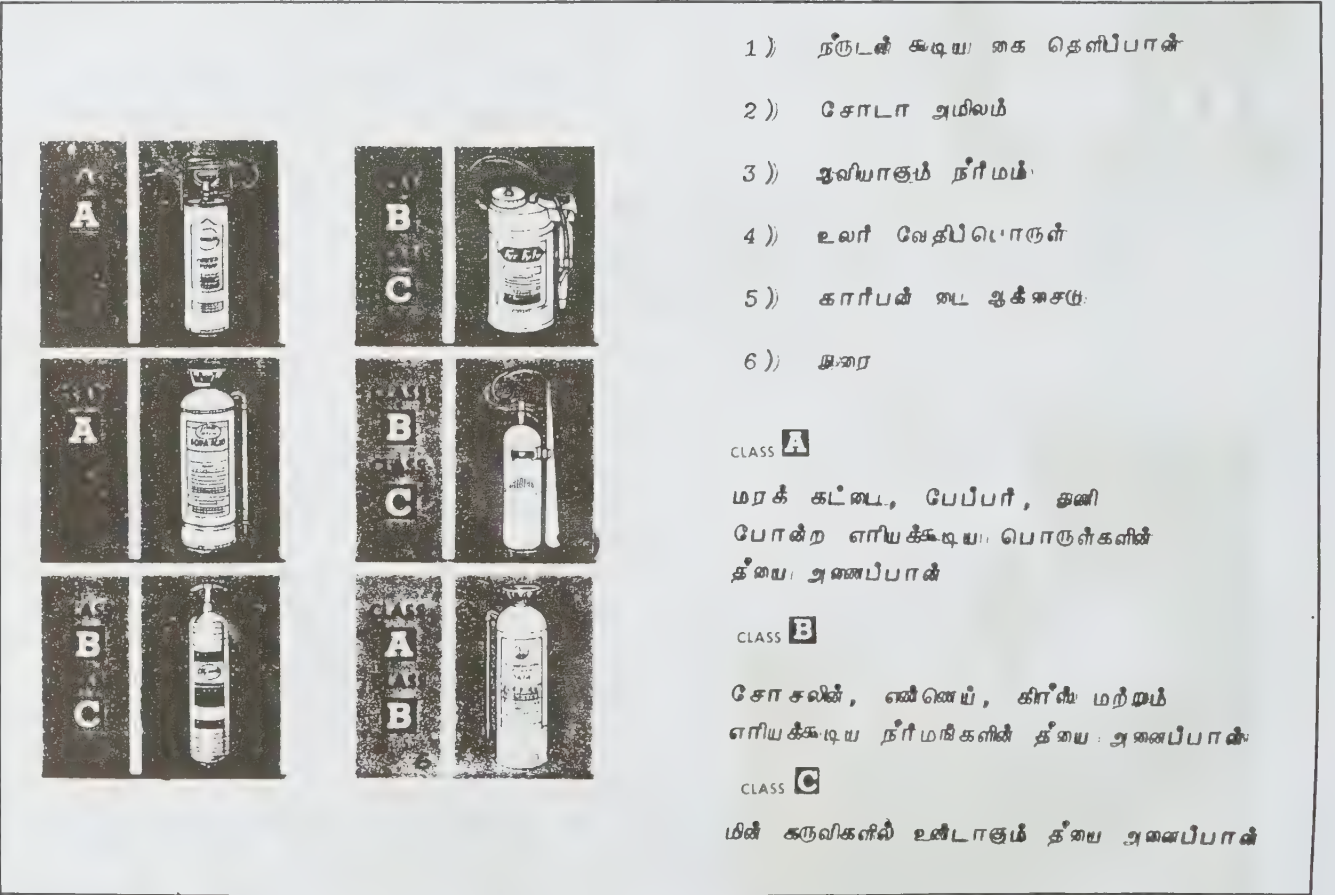 A
B
C
A
SODA ACID
B
CLASS
C
B
C
CLASS
A
B
6
1) நீருடன் கூடிய கை தெளிப்பான்
2) சோடா அமிலம்
3) ஆவியாகும் நீர்மம்
4) உலர் வேதிப்பொருள்
5) கார்பன் டை ஆக்சைடு
6) நுரை
CLASS A
மரக் கட்டை, பேப்பர், துணி
போன்ற எரியக்கூடிய பொருள்களின்
தீயை அணைப்பான்
CLASS B
சோசலின், எண்ணெய், கிரீஸ் மற்றும்
எரியக்கூடிய நீர்மங்களின் தீயை அனைப்பான்
CLASS C
மின் கருவிகளில் உண்டாகும் தீயை அனைப்பான்